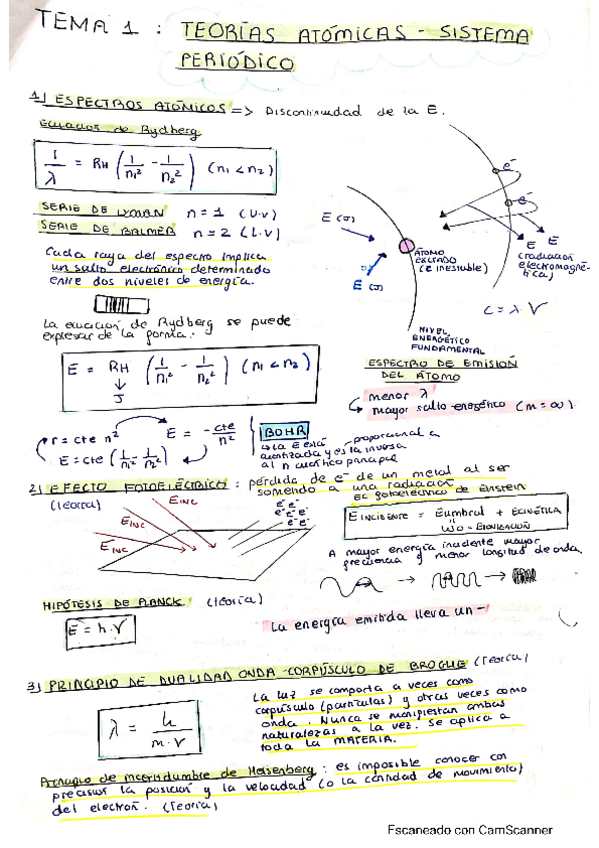 TEMA 1 : TEORÍAS ATÓMICAS - SISTEMA
PERIÓDICO
1) ESPECTROS ATÓMICOS => Discontinuidad de la E.
Ecuación de Rydberg
1/λ = RH (1/n1² - 1/n2²) (n1 < n2)
SERIE DE LYMAN n = 1 (U.V)
SERIE DE BALMER n = 2 (L.V)
Cada raya del espectro implica
un salto electrónico determinado
entre dos niveles de energía.
La ecuación de Rydberg se puede
expresar de la forma:
E = RH (1/n1² - 1/n2²) (n1 < n2)
J
E (J)
E (J)
ÁTOMO
EXCITADO
(e inestable)
e⁻
e⁻
E E
(radiación
electromagné-
tica)
c = λ·ν
NIVEL
ENERGÉTICO
FUNDAMENTAL
ESPECTRO DE EMISIÓN
DEL ÁTOMO
menor λ
mayor salto energético (m = ∞)
r = cte n² E = -cte/n²
E = cte (1/n1² - 1/n2²)
BOHR
La E está proporcional a
cuantizada y es la inversa
al n cuántico principal
2) EFECTO FOTOELÉCTRICO : pérdida de e⁻ de un metal al ser
(teoría) sometido a una radiación
Ec fotoeléctrico de Einstein
EINC
EINC
EINC
e⁻ e⁻
e⁻ e⁻ e⁻
e⁻ e⁻
EINCIDENTE = Eumbral + ECINÉTICA
A mayor energía incidente mayor
frecuencia y menor longitud de onda
HIPÓTESIS DE PLANCK (teoría)
E = h·ν
La energía emitida lleva un -
3) PRINCIPIO DE DUALIDAD ONDA-CORPÚSCULO DE BROGLIE (Teoría)
λ = h/m·v
La luz se comporta a veces como
corpúsculo (partículas) y otras veces como
onda. Nunca se manifiestan ambas
naturalezas a la vez. Se aplica a
toda la MATERIA.
Principio de incertidumbre de Heisenberg : es imposible conocer con
precisión la posición y la velocidad (o la cantidad de movimiento)
del electrón. (Teoría)
Escaneado con CamScanner